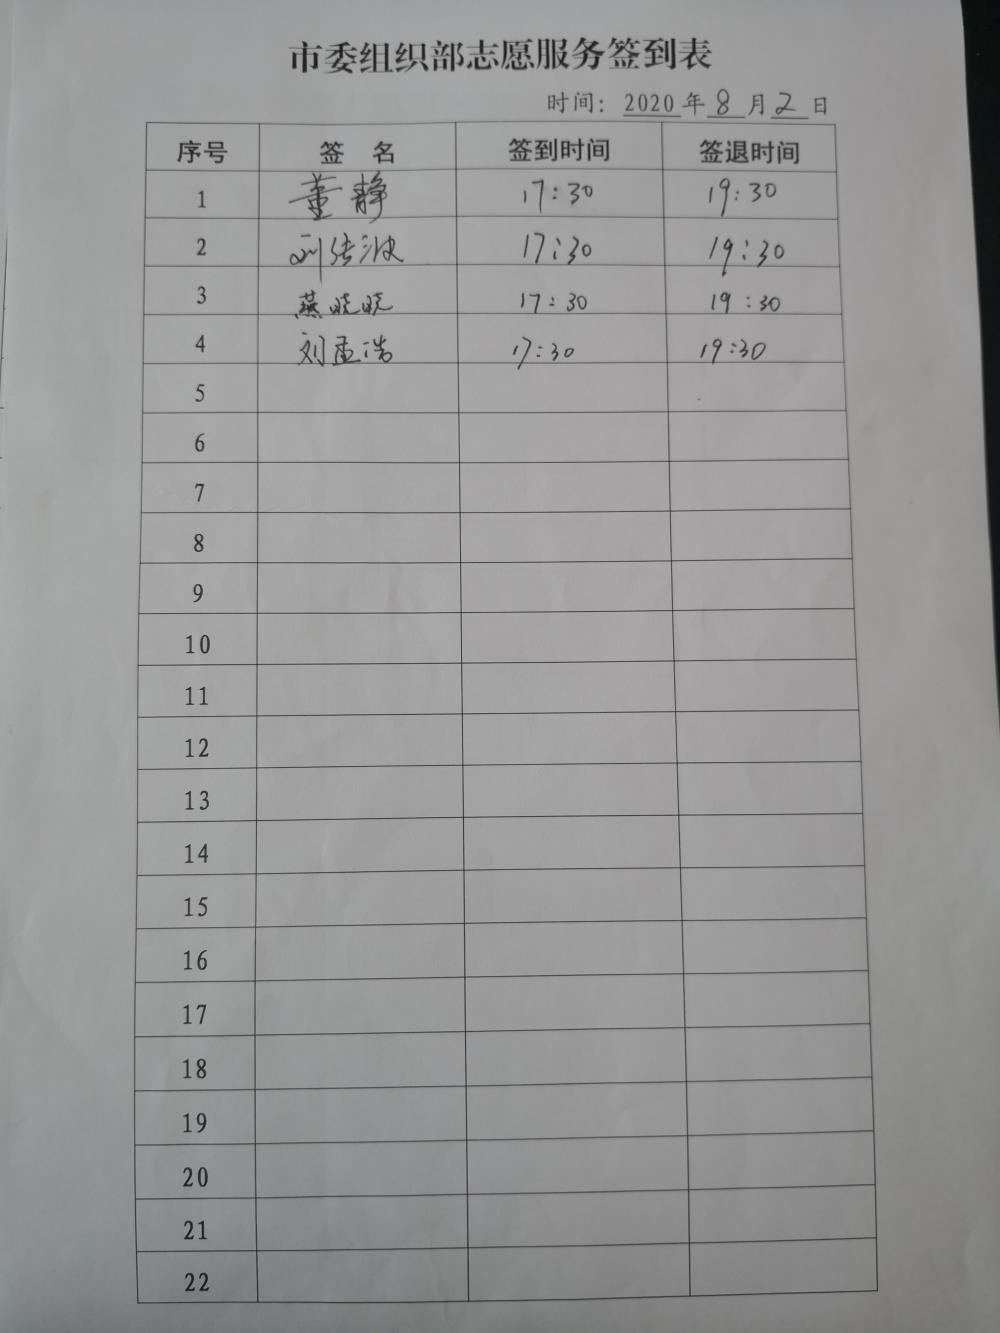 市委组织部志愿服务签到表
时间：2020年8月2日
序号 签 名 签到时间 签退时间
1 董静 17:30 19:30
2 刘传波 17:30 19:30
3 燕晓晓 17:30 19:30
4 刘孟浩 17:30 19:30
5
6
7
8
9
10
11
12
13
14
15
16
17
18
19
20
21
22